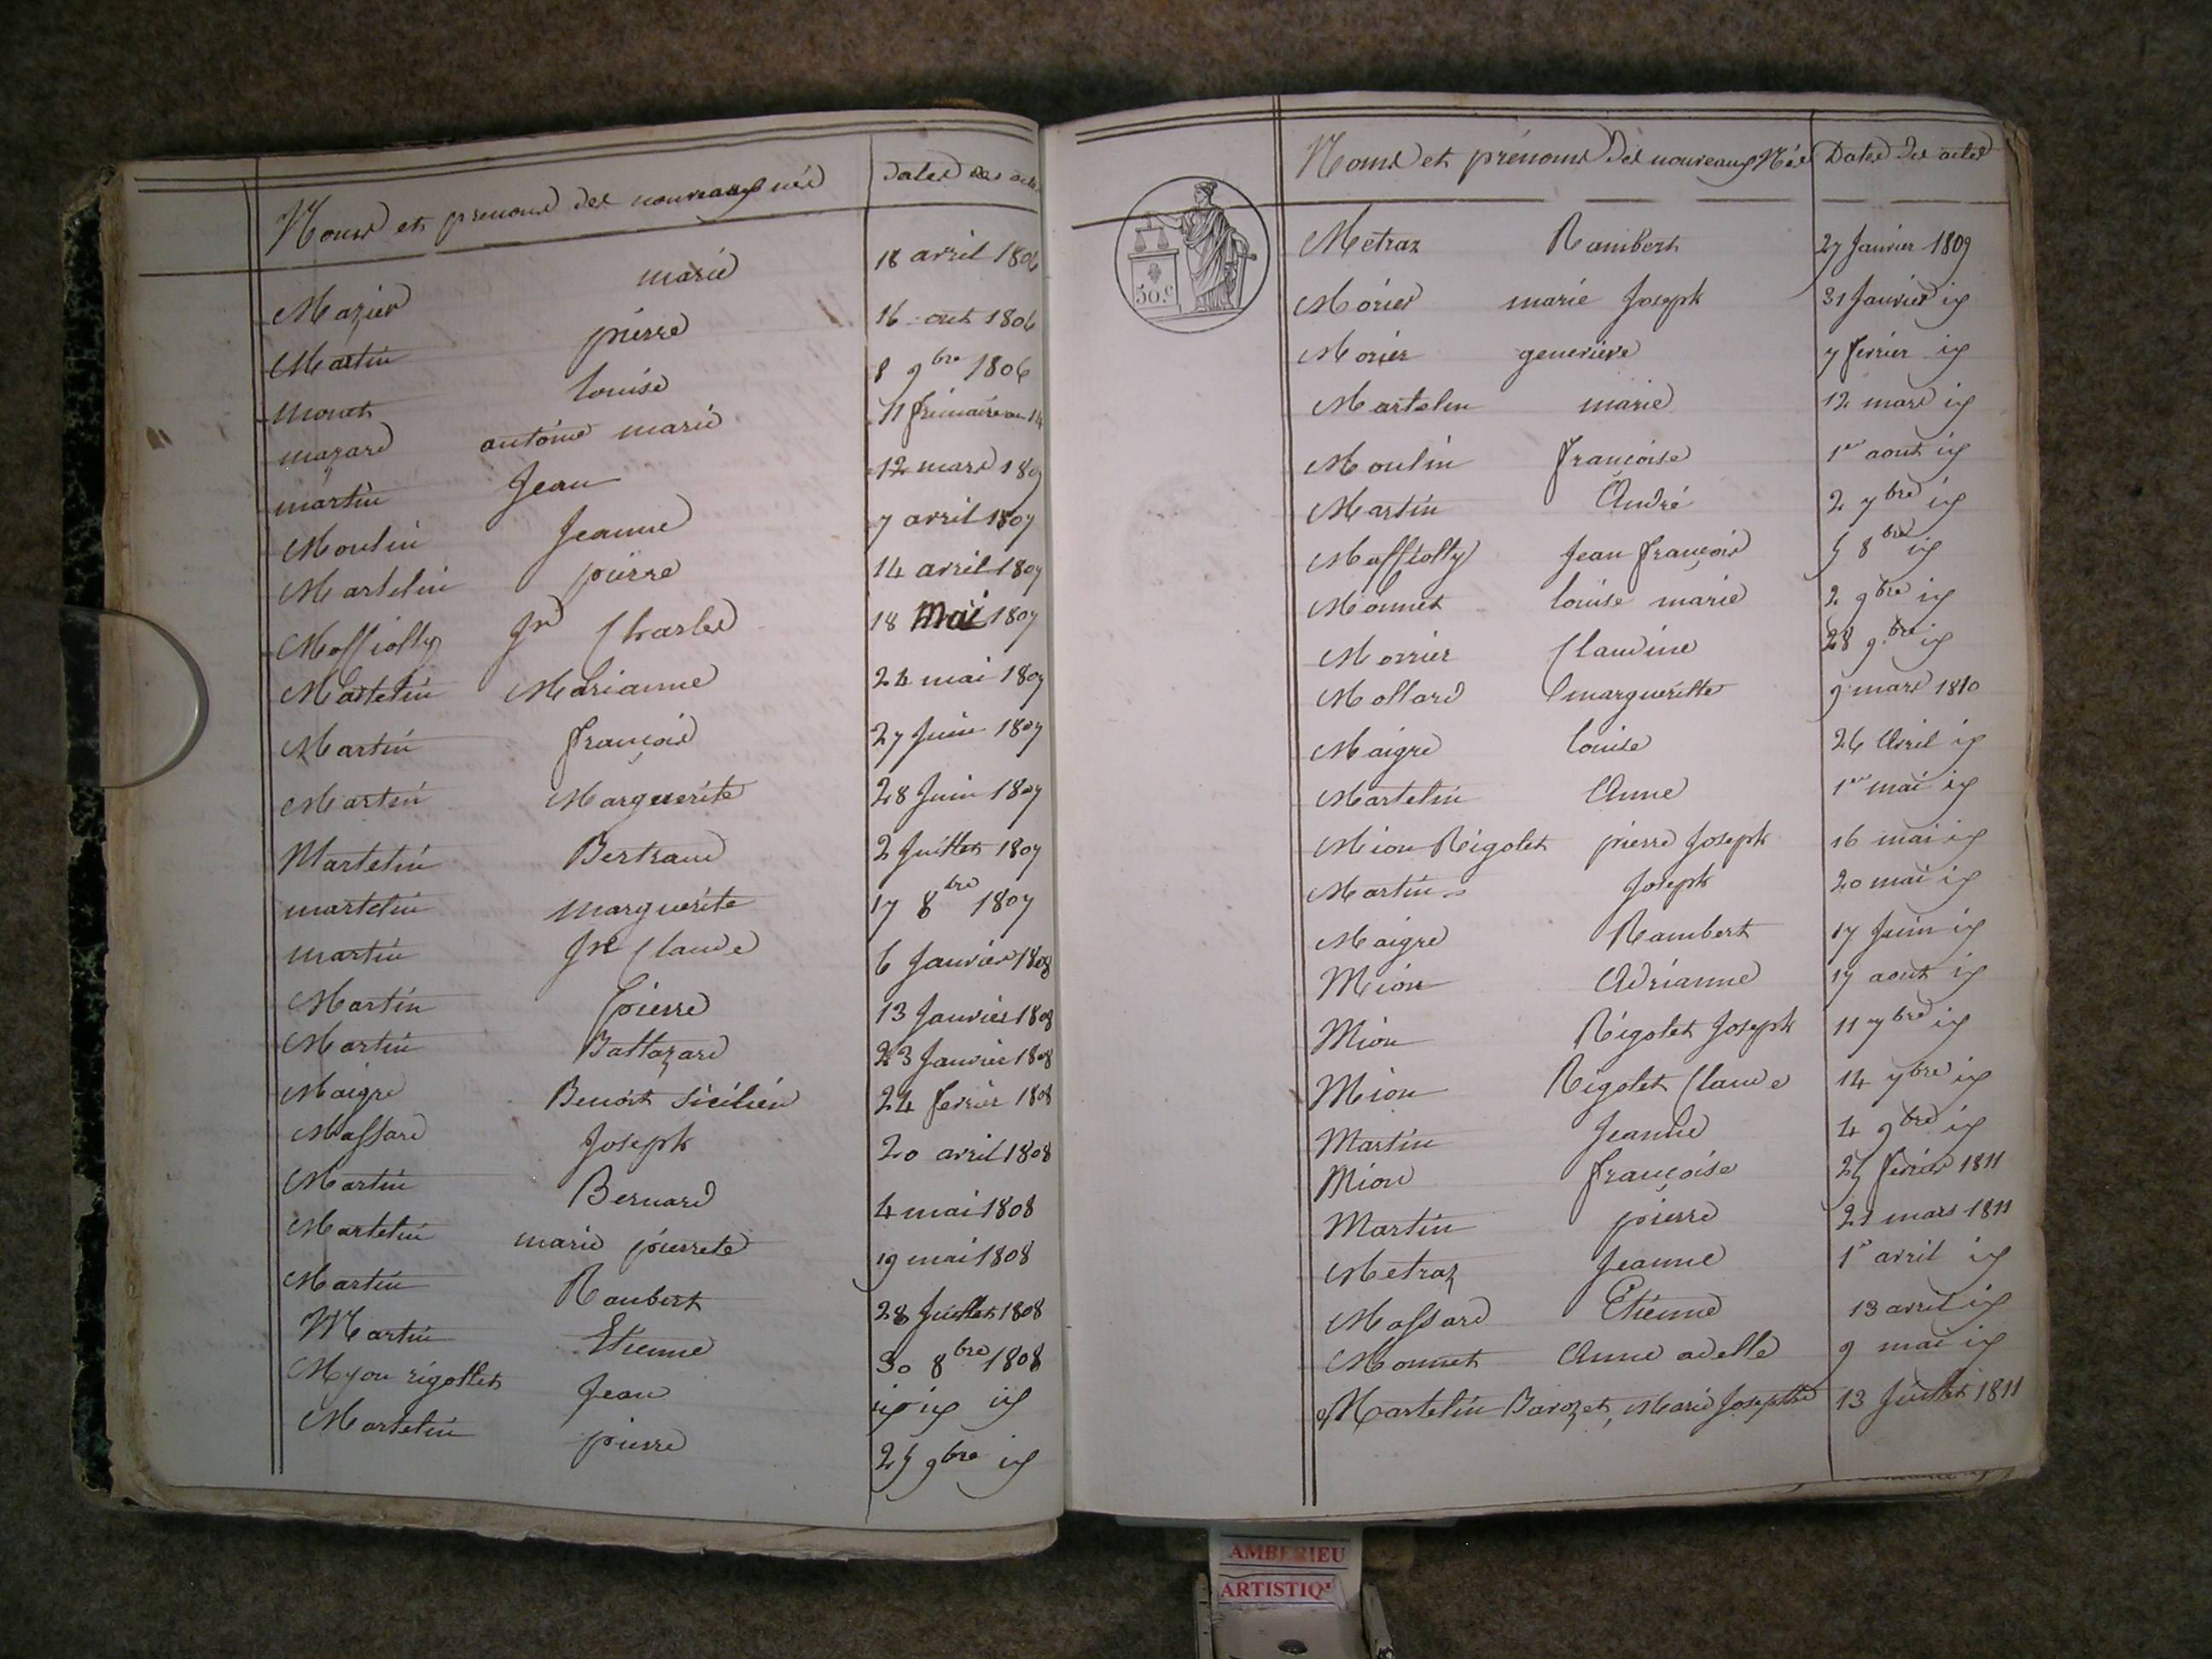 Noms et prenoms des nouveaux nés Dates des actes
Mazier marie 18 avril 1806
Martin pierre 16 out 1806
monet louise 8 9bre 1806
mazard antoine marie 11 frimaire an 14
martin Jean 12 mars 1807
Moulin Jeanne 7 avril 1807
Martelin pierre 14 avril 1807
Maffiolty Jn Charles 18 mai 1807
Martelin Marianne 24 mai 1807
Martin françois 27 Juin 1807
Martin Marguerite 28 Juin 1807
Martelin Bertrand 2 Juillet 1807
martelin marguerite 17 8bre 1807
martin Jn Claude 6 Janvier 1808
Martin pierre 13 Janvier 1808
Martin Battazard 23 Janvier 1808
Maigre Benoit Sicilien 24 fevrier 1808
Massard Joseph 20 avril 1808
Martin Bernard 4 mai 1808
Martelin marie pierrete 19 mai 1808
Martin Rambert 28 Juillet 1808
Martin Etienne 30 8bre 1808
Myon rigollet Jean ip ip ip
Martelin pierre 25 9bre ip
50.c
Noms et prénoms des nouveaux Nés Dates des actes
Metraz Rambert 27 Janvier 1809
Morier marie Joseph 31 Janvier ip
Morier genevieve 7 fevrier ip
Martelin marie 12 mars ip
Moulin françoise 1er aout ip
Martin André 2 7bre ip
Maffiolty Jean françois 5 8bre ip
Monnet louise marie 2 9bre ip
Morrier Claudine 28 9bre ip
Mollard margueritte 9 mars 1810
Maigre louise 26 Avril ip
Martelin Anne 1er mai ip
Mion Rigolet pierre Joseph 16 mai ip
Martin Joseph 20 mai ip
Maigre Rambert 17 Juin ip
Mion Adrianne 17 aout ip
Mion Rigolet Joseph 11 7bre ip
Mion Rigolet Claude 14 7bre ip
Martin Jeanne 4 9bre ip
Mion françoise 25 fevrier 1811
Martin pierre 21 mars 1811
Metraz Jeanne 1er avril ip
Massard Etienne 13 avril ip
Monnet Anne adelle 9 mai ip
Martelin Barozet, Marie Josephte 13 Juillet 1811
AMBERIEU
ARTISTIQ